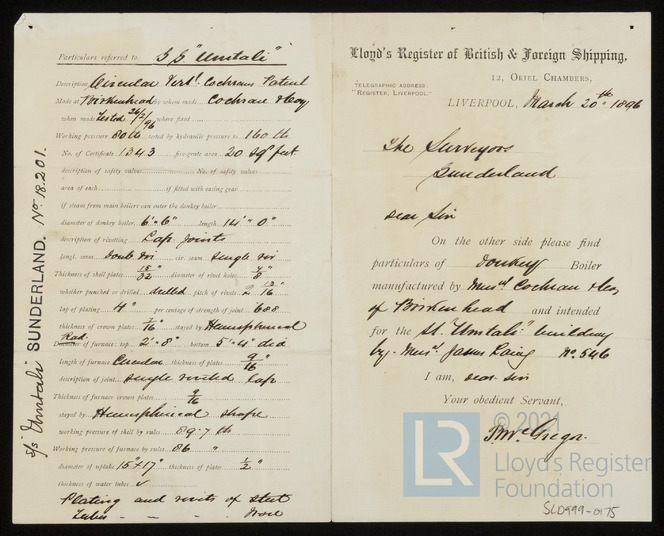 Particulars referred to S S "Umtali"
Description Circular Vert! Cochrans Patent
Made at Birkenhead by whom made Cochran & Coy
when made Tested 26/2/96 where fixed
Working pressure 80 lb tested by hydraulic pressure to 160 lb
No. of Certificate 1343 fire-grate area 20 sq feet
description of safety valves No. of safety valves
area of each if fitted with easing gear
if steam from main boilers can enter the donkey boiler
diameter of donkey boiler 6' 6" length 14' 0"
description of riveting Lap joints
longl. seam doub riv cir. seam single riv
Thickness of shell plates 15/32 diameter of rivet holes 7/8"
whether punched or drilled drilled pitch of rivets 2 12/16"
lap of plating 4" per centage of strength of joint 68.8
thickness of crown plates 7/16 stayed by Hemispherical
Rad
Diameter of furnace: top 2' 8" bottom 5' 4" dia
length of furnace Circular thickness of plates 9/16"
description of joint single riveted lap
Thickness of furnace crown plates 9/16
stayed by Hemispherical shape
working pressure of shell by rules 89.7 lb
Working pressure of furnace by rules 86 "
diameter of uptake 15" x 17" thickness of plates 1/2"
thickness of water tubes ✓
Plating and rivets of Steel
Tubes - - - Iron
s/s "Umtali" SUNDERLAND. No. 18.201.
Lloyd's Register of British & Foreign Shipping,
12, ORIEL CHAMBERS,
TELEGRAPHIC ADDRESS:
"REGISTER, LIVERPOOL."
LIVERPOOL, March 20th 1896
The Surveyors
Sunderland
Dear Sir
On the other side please find
particulars of donkey Boiler
manufactured by Messrs Cochran & Coy
of Birkenhead and intended
for the St. "Umtali" building
by Messrs James Laing No. 546
I am, dear sir
Your obedient Servant,
© 2021
LR
Lloyd's Register
Foundation
SLD999-0175